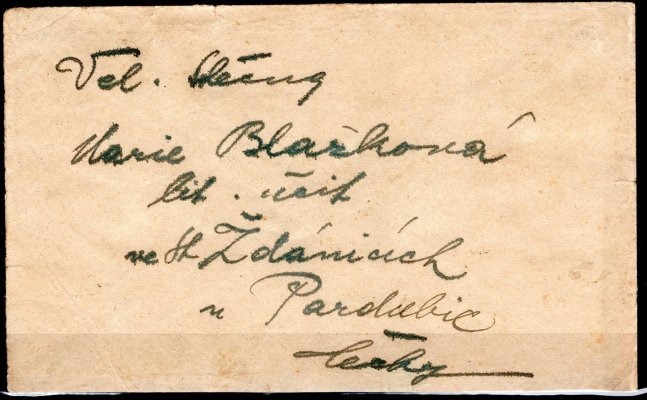 Vel. slečna
Marie Blažková
lit. učit
ve St Ždánicích
u Pardubic
Čechy